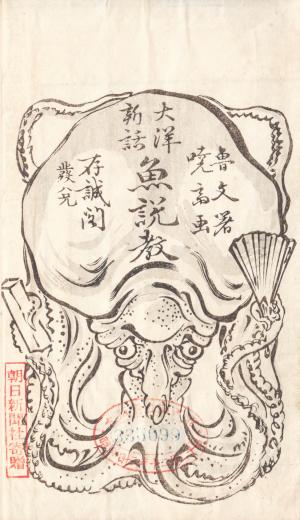 魯文署
暁斎画
大洋
新話
魚説教
存誠閣
發兌
朝日新聞社寄贈